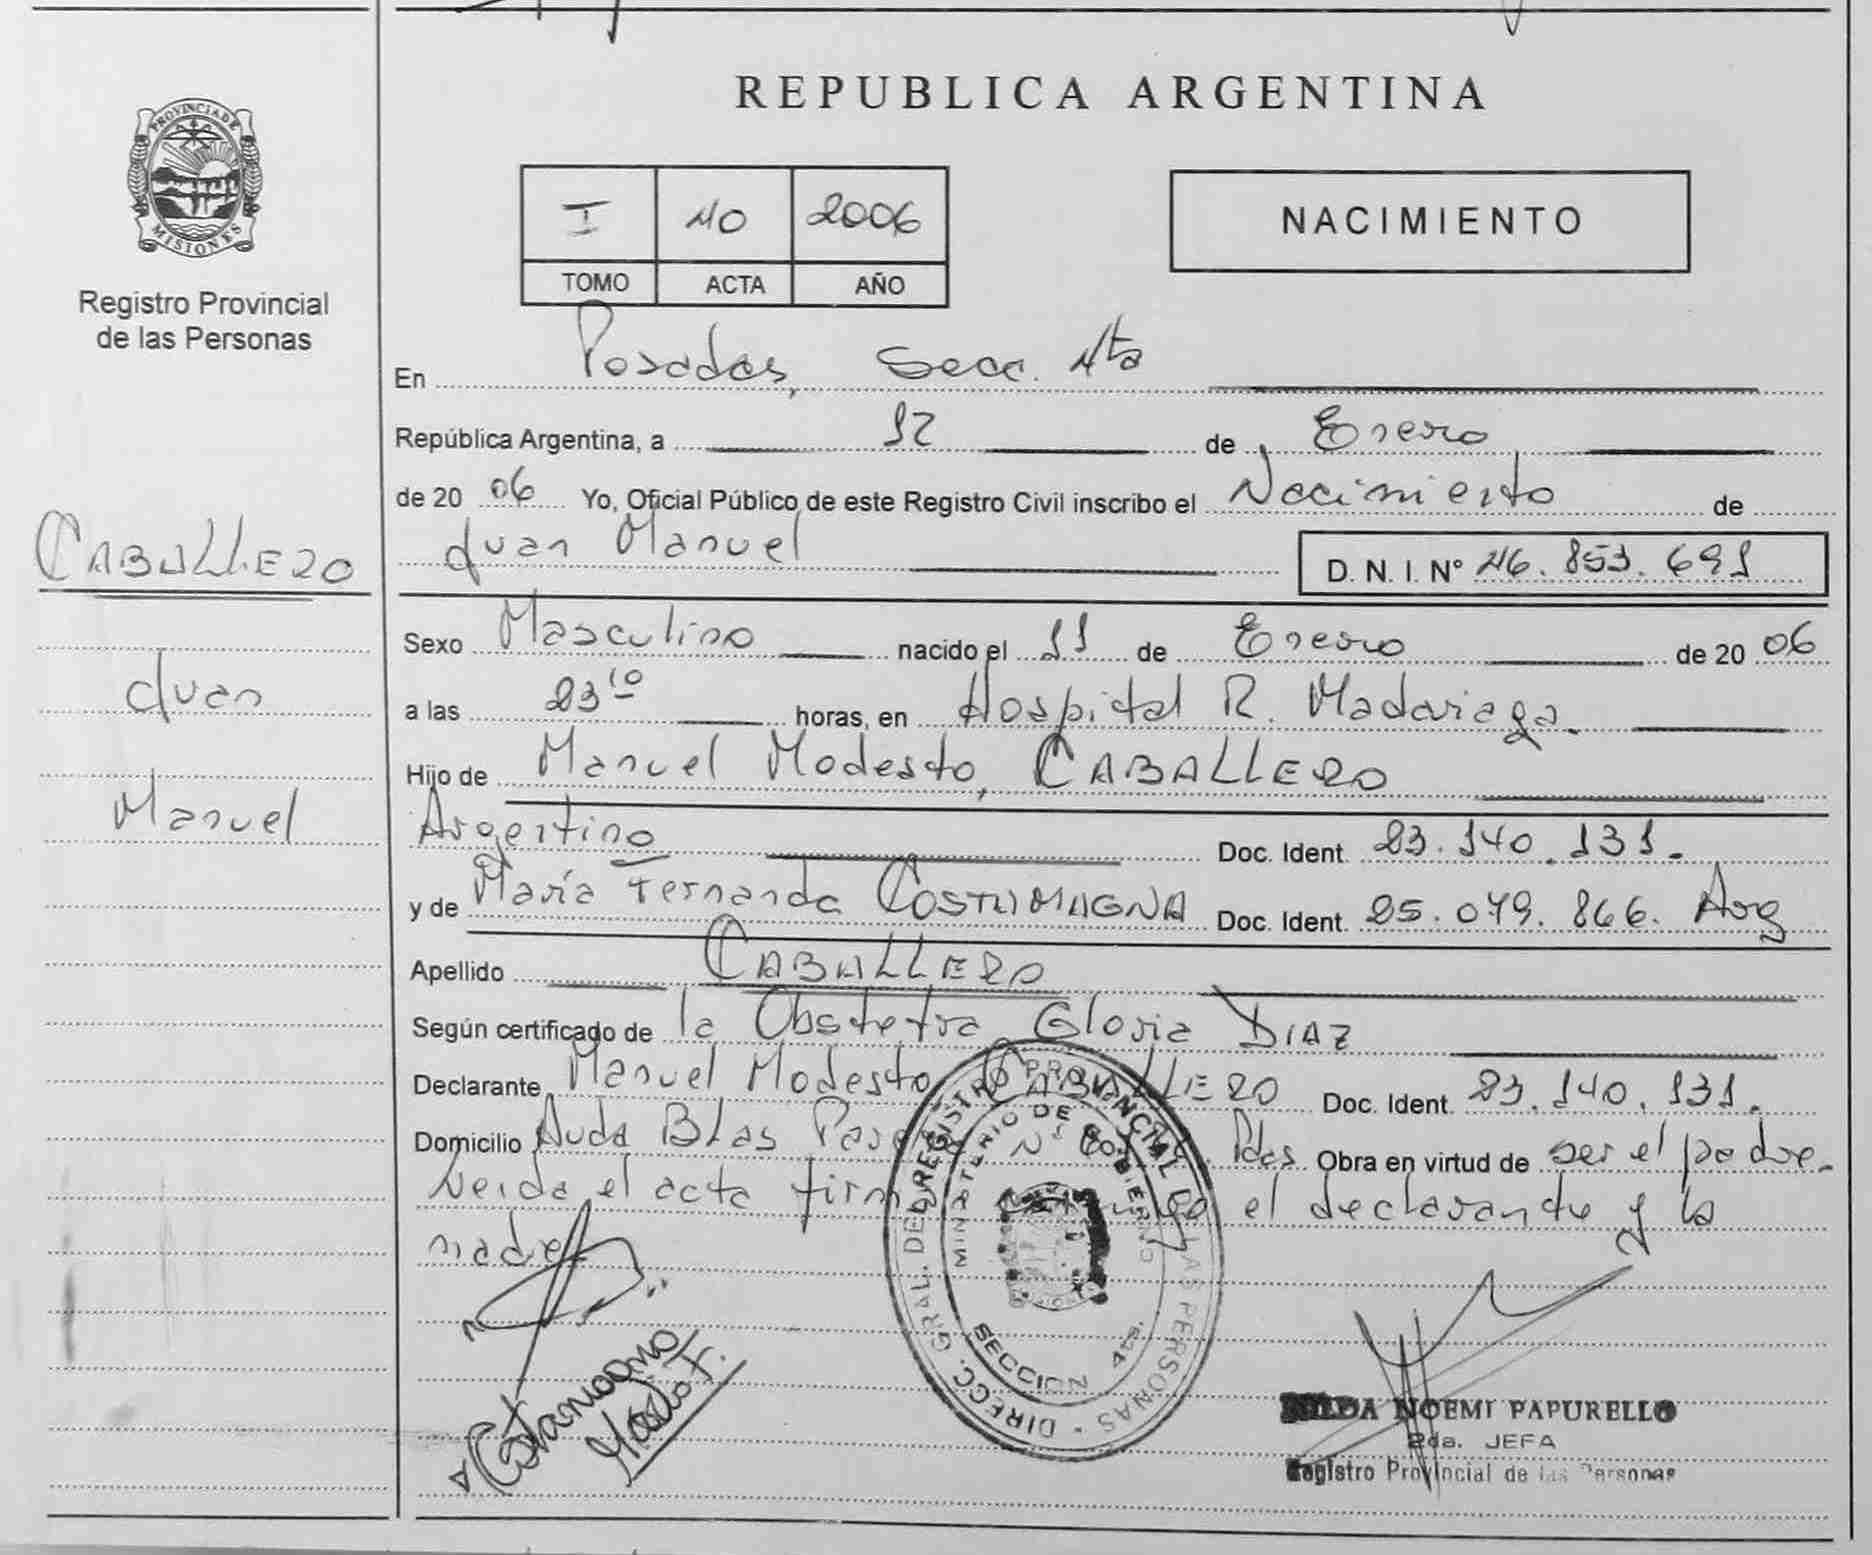 PROVINCIA DE
MISIONES
Registro Provincial
de las Personas
CABALLERO
Juan
Manuel
REPUBLICA ARGENTINA
I 40 2006
TOMO ACTA AÑO
NACIMIENTO
En Posadas, Secc. 4ta
República Argentina, a 12 de Enero
de 2006 Yo, Oficial Público de este Registro Civil inscribo el Nacimiento de
Juan Manuel D. N. I. N° 46.853.691
Sexo Masculino nacido el 11 de Enero de 2006
a las 23 10 horas, en Hospital R. Madariaga.
Hijo de Manuel Modesto, CABALLERO
Argentino Doc. Ident. 23.140.131.
y de María Fernanda COSTAMAGNA Doc. Ident. 25.079.866. Arg
Apellido CABALLERO
Según certificado de la Obstetra Gloria DIAZ
Declarante Manuel Modesto CABALLERO Doc. Ident. 23.140.131.
Domicilio Avda Blas N° Pdas. Obra en virtud de ser el padre.
Leida el acta el declarante y la
madre
DIRECC. GRAL. DEL REGISTRO PROVINCIAL LAS PERSONAS
MINISTERIO DE GOBIERNO
SECCION 4ta.
Costamagna
María F.
NOEMI PAPURELLO
2da. JEFA
Registro Provincial de las Personas